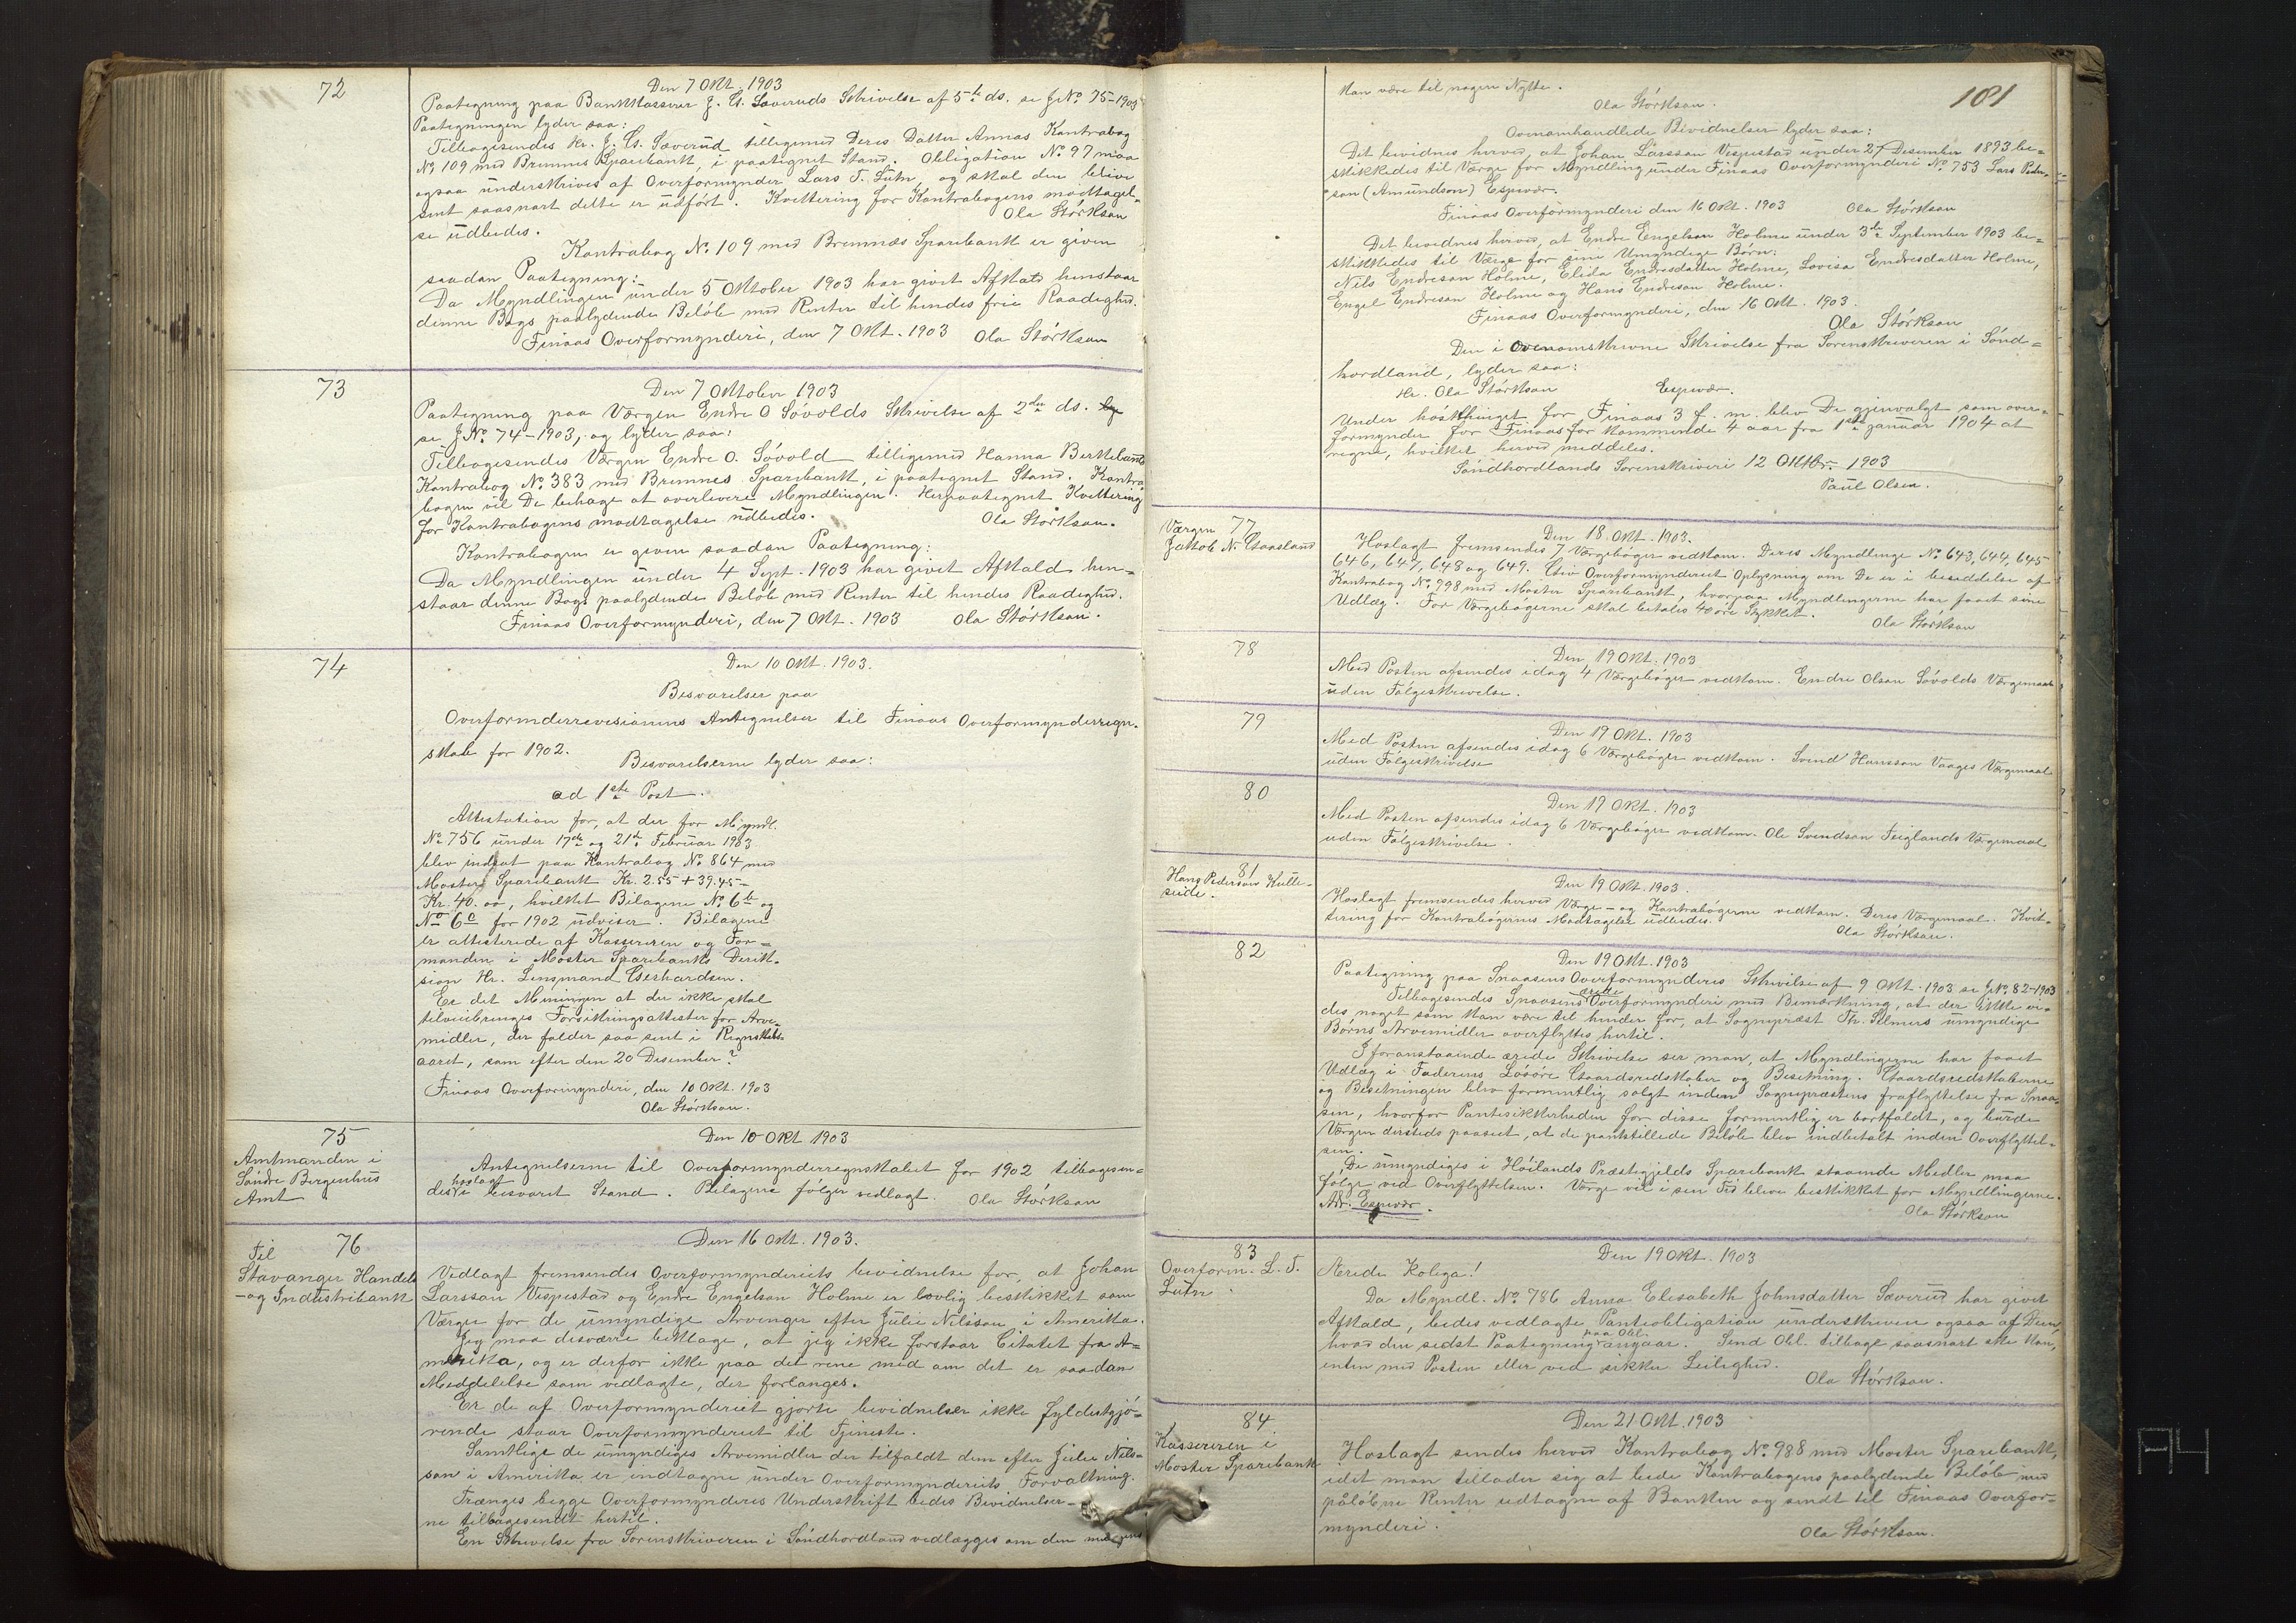 72
Den 7 Okt. 1903
Paategning paa Bankkasserer J. G. Særeruds Skrivelse af 5te ds. se J.No. 75-1903
Paategningen lyder saa:
Tilbagesendes Hr. J. G. Sæverud tilligemed Deres Datter Annas Kontrabog
No. 109 med Bremnes Sparebank, i paategnet Stand. Obligation No. 97 maa
ogsaa underskrives af Overformynder Lars T. Lutn, og skal den blive
sent saasnart dette er udfört. Kvittering for Kontrabogens modtagel-
se udbedes.
Ola Störkson
Kontrabog No. 109 med Bremnæs Sparebank er given
saadan Paategning:
Da Myndlingen under 5 Oktober 1903 har givet Afkald henstaar
denne Bogs paalydende Belöb med Renter til hendes frie Raadighed.
Finaas Overformynderi, den 7 Okt. 1903 Ola Störkson
73
Den 7 Oktober 1903
Paategning paa Værgen Endre O Sövolds Skrivelse af 2den ds.
se J.No. 74-1903, og lyder saa:
Tilbagesendes Værgen Endre O. Sövold tilligemed Hanna
Kontrabog No. 383 med Bremnes Sparebank, i paategnet Stand. Kontra-
bogen vil De behage at overlevere Myndlingen. Herpaategnet Kvittering
for Kontrabogens modtagelse udbedes.
Ola Störkson.
Kontrabogen er given saadan Paategning:
Da Myndlingen under 4 Sept. 1903 har givet Afkald hen-
staar denne Bogs paalydende Belöb med Renter til hendes Raadighed.
Finaas Overformynderi, den 7 Okt. 1903 Ola Störkson.
74
Den 10 Okt. 1903.
Besvarelser paa
Overformderrevisionens Antegnelser til Finaas Overformynderregn-
skab for 1902.
Besvarelserne lyder saa:
ad 1ste Post.
Attestation for, at der for Myndl.
No. 756 under 17de og 21de Februar 1903
blev indsat paa Kontrabog No. 864 med
Moster Sparebank Kr. 2.55 + 39.45 -
Kr. 40.00, hvilket Bilagene No. 6b og
No 6c for 1902 udviser. Bilagene
er attesterede af Kassereren og For-
manden i Moster Sparebanks Derik-
sion Hr. Lensmand Gerhardsen.
Er det Meningen at der ikke skal
tilveiebringes Forsikringsattester for Arve-
midler, der falder saa sent i Regnskabs-
aaret, som efter den 20 Desember?
Finaas Overformynderi, den 10 Okt. 1903
Ola Störkson.
75
Amtmanden i
Söndre Bergenhus
Amt
Den 10 Okt 1903
Antegnelserne til Overformynderregnskabet for 1902 tilbagesen-
hoslagt
des i besvaret Stand. Bilagene fölger vedlagt. Ola Störkson
76
Til
Stavanger Handels
-og Industribank
Den 16 Okt. 1903.
Vedlagt fremsendes Overformynderiets bevidnelse for, at Johan
Larsson Vespestad og Endre Engelson Holme er lovlig beskikket som
Værger for de umyndige Arvinger efter Julie Nilsson i Amerika.
Jeg maa desværre beklage, at jeg ikke forstaar Citatet fra A-
merika, og er derfor ikke paa det rene med om det er saadan
Meddelelse som vedlagte, der forlanges.
Er de af Overformynderiet gjorte bevidnelser ikke fyldestgjö-
rende staar Overformynderiet til Tjeneste.
Samtlige de umyndiges Arvemidler der tilfaldt dem efter Julie Nils-
son i Amerika er indtagne under Overformynderiets Forvaltning.
Trænges begge Overformynderes Underskrift bedes Bevidnelser-
ne tilbagesendt hertil.
En Skrivelse fra Sorenskriveren i Söndhordland vedlægges om den muligens
101
kan være til nogen Nytte.
Ola Störkson.
Ovenomhandlede Bevidnelser lyder saa:
Det bevidnes herved, at Johan Larsson Vespestad under 27 Desember 1893 be-
skikkedes til Værge for Myndling under Finaas Overformynderi No. 753 Lars Peder-
son (Amundson) Espevær.
Finaas Overformynderi den 16 Okt. 1903 Ola Störkson
Det bevidnes herved, at Endre Engelson Holme under 3die September 1903 be-
skikkedes til Værge for sine Umyndige Börn:
Nils Endreson Holme, Elida Endresdatter Holme, Lovisa Endresdatter Holme,
Engel Endreson Holme og Hans Endreson Holme.
Finaas Overformynderi, den 16 Okt. 1903.
Ola Störkson
Den i Ovenomskrevne Skrivelse fra Sorenskriveren i Sönd-
hordland, lyder saa:
Hr. Ola Störkson Espevær.
Under hösthinget for Finaas 3 f. m. blev De gjenvalgt som over-
formynder for Finaas for kommende 4 aar fra 1ste januar 1904 at
regne, hvilket herved meddeles.
Söndhordlands Sorenskriveri 12 Oktbr. 1903
Paul Olsen.
77
Værgen
Jakob N. Gaasland
Den 18 Okt. 1903.
Hoslagt fremsendes 7 Værgebøger vedkom. Deres Myndlinge No. 643, 644, 645
646, 647, 648 og 649. Giv Overformynderiet Oplysning om De er i besiddelse af
Kontrabog No. 998 med Moster Sparebank, hvorpaa Myndlingerne har faaet sine
Udlæg. For Værgebögerne skal betales 40 öre Stykket.
Ola Störkson
78
Den 19 Okt. 1903
Med Posten afsendes idag 4 Værgeböger vedkom. Endre Olson Sövolds Værgemaal
uden Fölgeskrivelse.
79
Den 19 Okt. 1903
Med Posten afsendes idag 6 Værgeböger vedkom. Svend Hansson Vaages Værgemaal
uden Fölgeskrivelse
80
Den 19 Okt. 1903
Med Posten afsendes idag 6 Værgeböger vedkom. Ole Svendson Feiglands Værgemaal
uden Fölgeskrivelse.
81
Hans Pederson Kulle-
seide.
Den 19 Okt. 1903.
Hoslagt fremsendes herved Værge- og Kontrabögerne vedkom. Deres Værgemaal. Kvit-
tering for Kontrabögernes Modtagelse udbedes.
Ola Störkson.
82
Den 19 Okt. 1903
Paategning paa Snaasens Overformynderis Skrivelse af 9 Okt. 1903 se J.No. 82-1903
ærede
Tilbagesendes Snaasens Overformynderi med Bemærkning, at der ikke vi-
des noget som kan være til hinder for, at Sognepræst Th. Selmers umyndige
Börns Arvemidler overflyttes hertil.
I foranstaaende ærede Skrivelse ser man, at Myndlingerne har faaet
Udlæg i Faderens Lösöre Gaardsredskaber og Besetning. Gaardsredskaberne
og Besetningen blev formentlig solgt inden Sognepræstens fraflyttelse fra Snaa-
sen, hvorfor Pantesikkerheden for disse formentlig er bortfaldt, og burde
Værgen dersteds paaseet, at de pantstillede Belöb blev indbetalt inden Overflyttel-
sen.
De umyndiges i Höilands Præstegjelds Sparebank staaende Medler maa
fölge ved Overflyttelsen. Værge vil i sin Tid bleve beskikket for Myndlingerne.
Adr. Espevær.
Ola Störkson
83
Overform. L. T.
Lutn.
Den 19 Okt. 1903
Ærede Kolega!
Da Myndl. No. 786 Anna Elesabeth Johnsdatter Sæverud har givet
Afkald, bedes vedlagte Panteobligation underskreven ogsaa af Dem,
paa Obl.
hvad den sedst Paategning angaar. Send Obl. tilbage saasnart ske kan,
enten med Posten eller ved sikker Leilighed.
Ola Störkson.
84
Kassereren i
Moster Sparebank
Den 21 Okt. 1903
Hoslagt sendes herved Kontrabog No. 988 med Moster Sparebank,
idet man tillader sig at bede Kontrabogens paalydende Belöb med
pålöbne Renter udtagne af Banken og sendt til Finaas Overfor-
mynderi.
Ola Störkson.